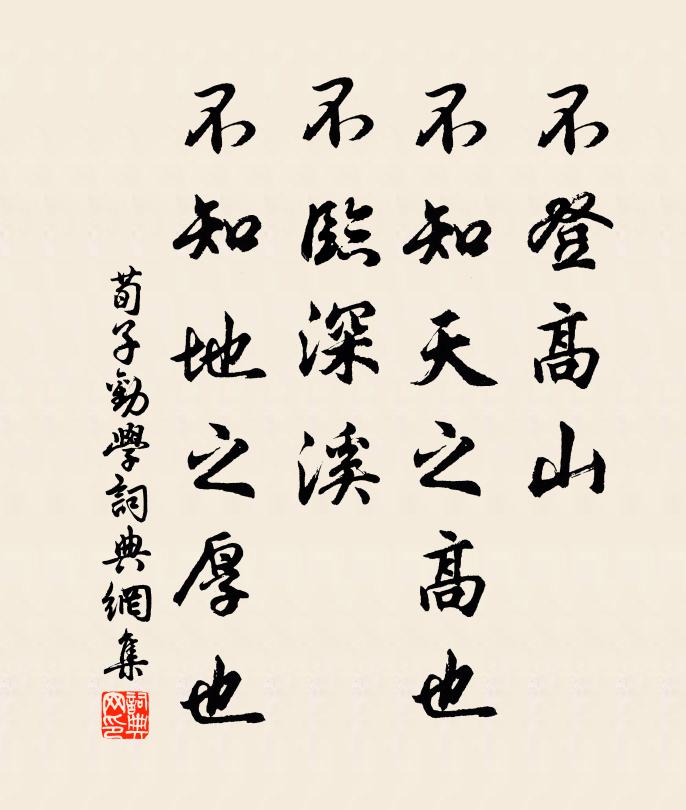 不登高山
不知天之高也
不臨深溪
不知地之厚也
荀子勸學詞典網集
詞典网印